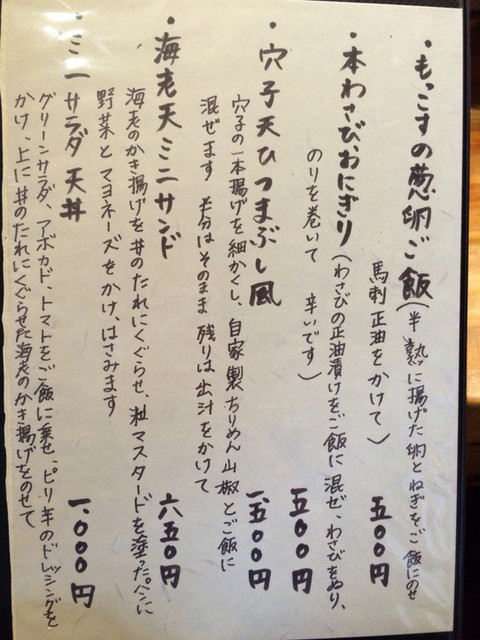 ・もっこすの葱卵ご飯(半熟に揚げた卵とねぎをご飯にのせ
馬刺正油をかけて) 五〇〇円
・本わさびおにぎり(わさびの正油漬けをご飯に混ぜ、わさびをぬり、
のりを巻いて 辛いです) 五〇〇円
・穴子天ひつまぶし風 一、五〇〇円
穴子の一本揚げを細かくし、自家製ちりめん山椒とご飯に
混ぜます 半分はそのまま 残りは出汁をかけて
・海老天ミニサンド 六五〇円
海老のかき揚げを丼のたれにくぐらせ、粒マスタードを塗ったパンに
野菜とマヨネーズをかけ、はさみます
・ミニサラダ天丼 一、〇〇〇円
グリーンサラダ、アボカド、トマトをご飯に乗せ、ピリ辛のドレッシングを
かけ、上に丼のたれにくぐらせた海老のかき揚げをのせて